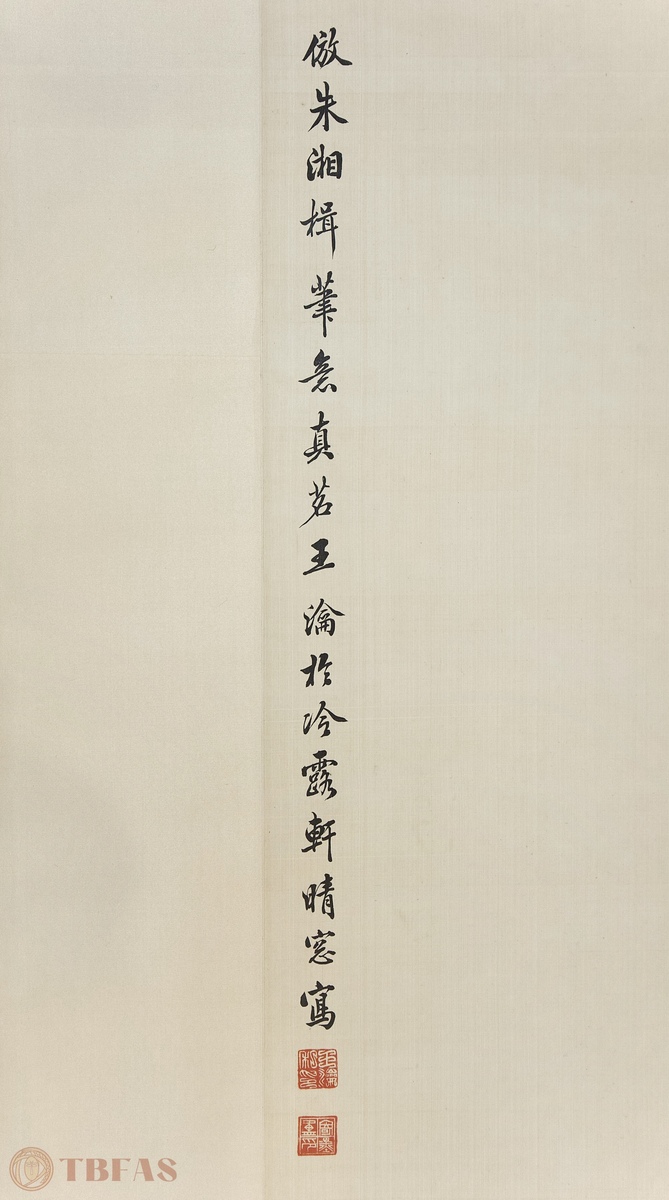 倣朱湘楫筆意真茗王瀹於冷露軒晴窓寫
TBFAS